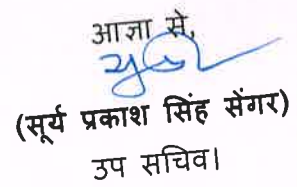 आज्ञा से,
(सूर्य प्रकाश सिंह सेंगर)
उप सचिव।